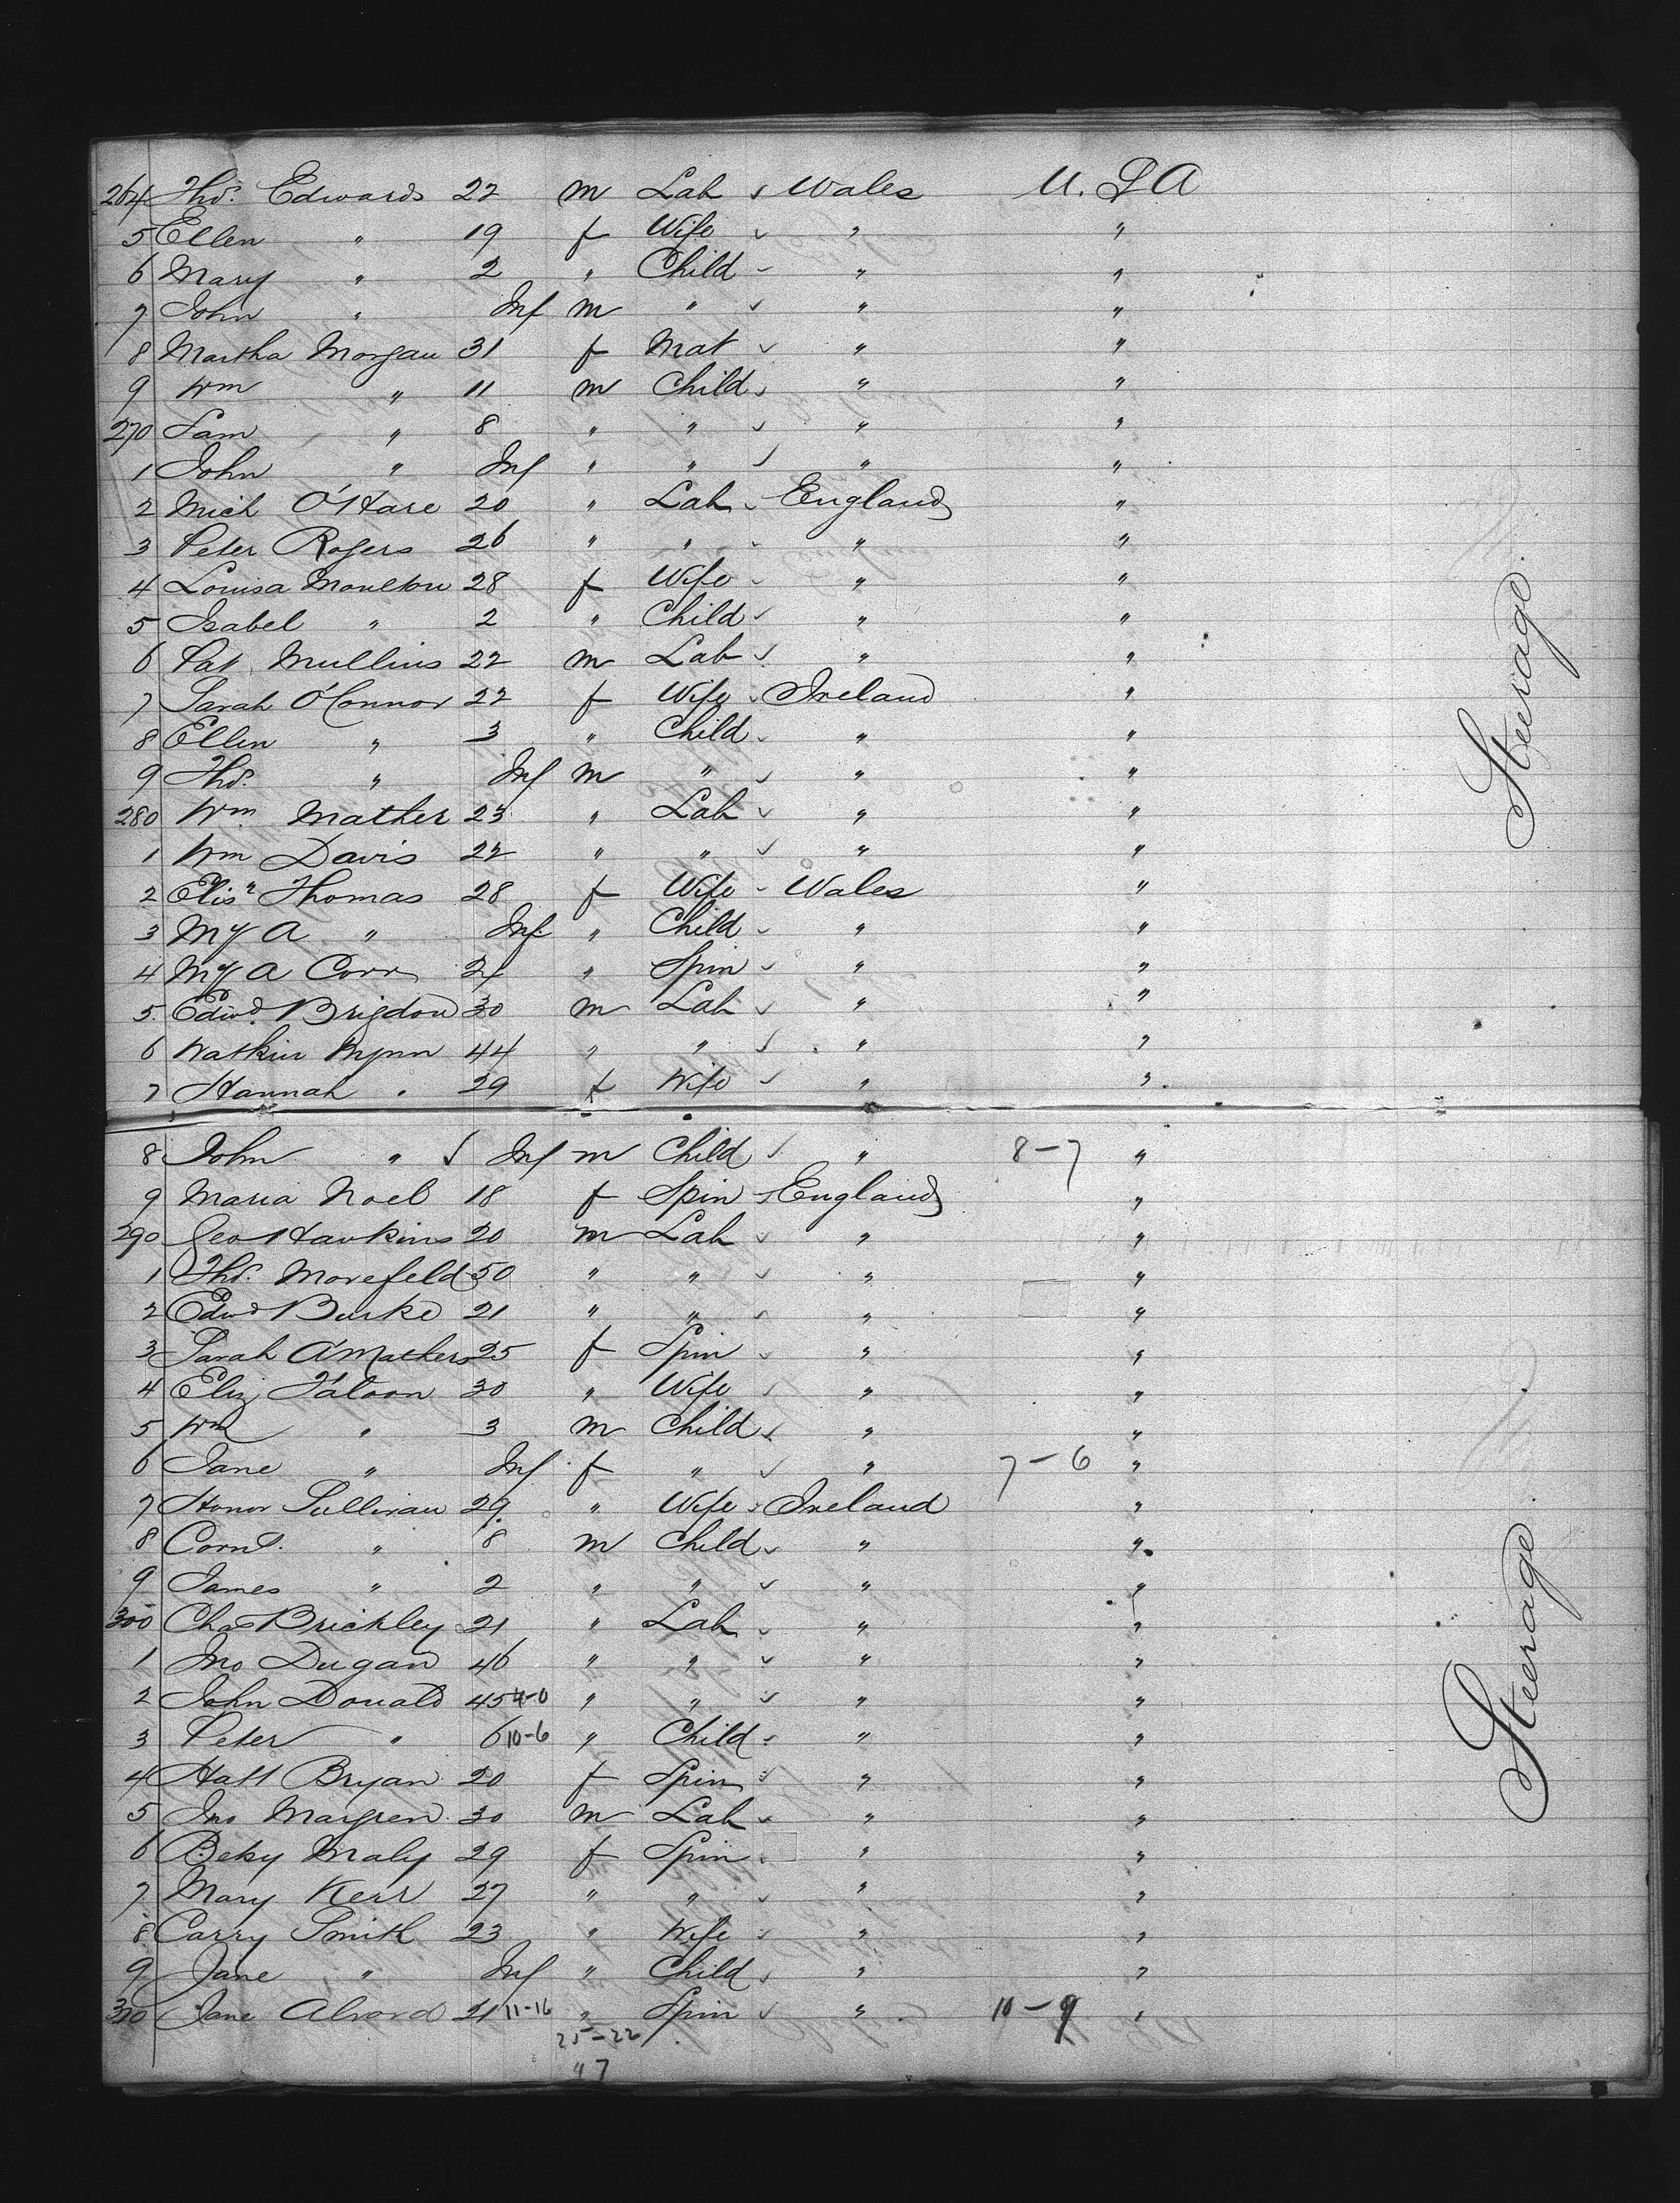 264 Thos. Edwards 22 m Lab ✓ Wales U. S A
5 Ellen " 19 f Wife ✓ " "
6 Mary " 2 " Child " "
7 John " Inf m " ✓ " "
8 Martha Morgan 31 f Mat ✓ " "
9 Wm " 11 m Child ✓ " "
270 Sam " 8 " " ✓ " "
1 John " Inf " " ✓ " "
2 Mich O'Hare 20 " Lab ✓ England "
3 Peter Rogers 26 " " " "
4 Louisa Moulton 28 f Wife " "
5 Isabel " 2 " Child ✓ " "
6 Pat Mullins 22 m Lab ✓ " "
7 Sarah O'Connor 22 f Wife ✓ Ireland "
8 Ellen " 3 " Child " "
9 Thos. " Inf m " ✓ " "
280 Wm Mather 23 " Lab ✓ " "
1 Wm Davis 22 " " ✓ " "
2 Elisr Thomas 28 f Wife Wales "
3 My A " Inf " Child " "
4 My A Corr 21 " Spin ✓ " "
5 Edwd. Brigdon 30 m Lab ✓ " "
6 Watkin Wynn 44 " " ✓ " "
7 Hannah " 29 f Wife ✓ " "
8 John " ✓ Inf m Child ✓ " 8-7 "
9 Maria Noel 18 f Spin ✓ England "
290 Geo Hawkins 20 m Lab ✓ " "
1 Thos. Morefeld 50 " " ✓ " "
2 Edwd Burke 21 " " ✓ " "
3 Sarah A Mathers 25 f Spin ✓ " "
4 Eliz 30 " Wife ✓ " "
5 Wm " 3 m Child ✓ " "
6 Jane " Inf f " ✓ " 7-6 "
7 Honor Sullivan 29 " Wife ✓ Ireland "
8 Corns. " 8 m Child ✓ " "
9 James " 2 " " ✓ " "
300 Chas Brickley 21 " Lab ✓ " "
1 Jno Dugan 46 " " ✓ " "
2 John Donald 45 4-0 " " ✓ " "
3 Peter " 6 10-6 " Child " "
4 Hatt Bryan 20 f Spin ✓ " "
5 Jno Margren 30 m Lab ✓ " "
6 Beky Maly 29 f Spin " "
7 Mary Kerr 27 " " ✓ " "
8 Carry Smith 23 " Wife ✓ " "
9 Jane " Inf " Child ✓ " "
310 Jane Alvord 21 11-16 " Spin ✓ " 10-9 "
25-22
47
Steerage.
Steerage